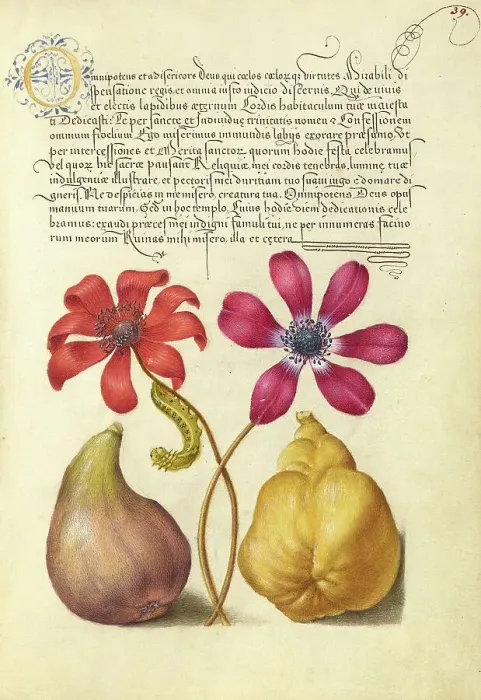 39.
Omnipotens et adisericors Deus, qui cœlos cœlorq; virtutes, Mirabili di
spensatione regis, et omnia iusto iudicio discernis, Qui de vivis
et electis lapidibus æternum Cordis habitaculum tuæ maiesta
ti Dedicasti: Te per sanctæ et Individuæ trinitatis nomen & Confessionem
omnium fidelium Ego miserimus immundis labijs exorare præsumo, Vt
per intercessiones et Merita sanctor. quorum hodie festa celebramus
vel quorum hic sacræ pausant Reliquiæ, mei cordis tenebras, lumine tuæ
indulgentiæ illustrare, et pectoris mei duritiam tuo suavi iugo edomare di
gneris. Ne despicias in me misero, creatura tua. Omnipotens Deus opus
manuum tuarum, Sed in hoc templo, Cuius hodie diem dedicationis cele
bramus: exaudi præces mei indigni famuli tui, ne per innumeras facino
rum meorum Ruinas mihi misero, illa et cetera